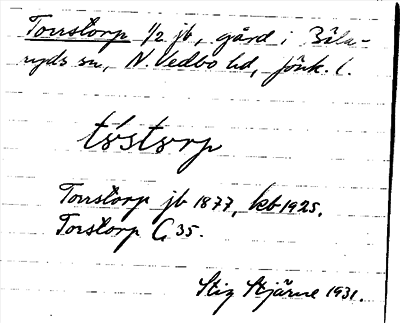 Torstorp 1/2 jb, gård i Bäla-
ryds sn, N. Vedbo hd, Jönk. l.
tó̀storp
Torstorp jb 1877, kb 1925.
Torstorp G 35.
Stig Stjärne 1931.